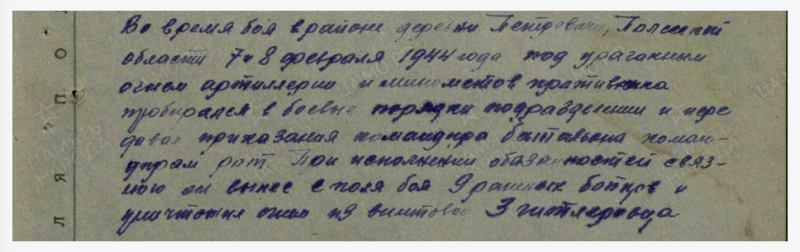 Во время боя в районе деревни Петровичи, Полесской
области 7 и 8 февраля 1944 года под ураганным
огнем артиллерии и минометов противника
пробирался в боевые порядки подразделении и пере
давал приказания командира батальона коман-
дирам рот. При исполнении обязанностей связ-
ного он вынес с поля боя 9 раненых бойцов и
уничтожил огнем из винтовки 3 гитлеровца
ЛЯ ПО